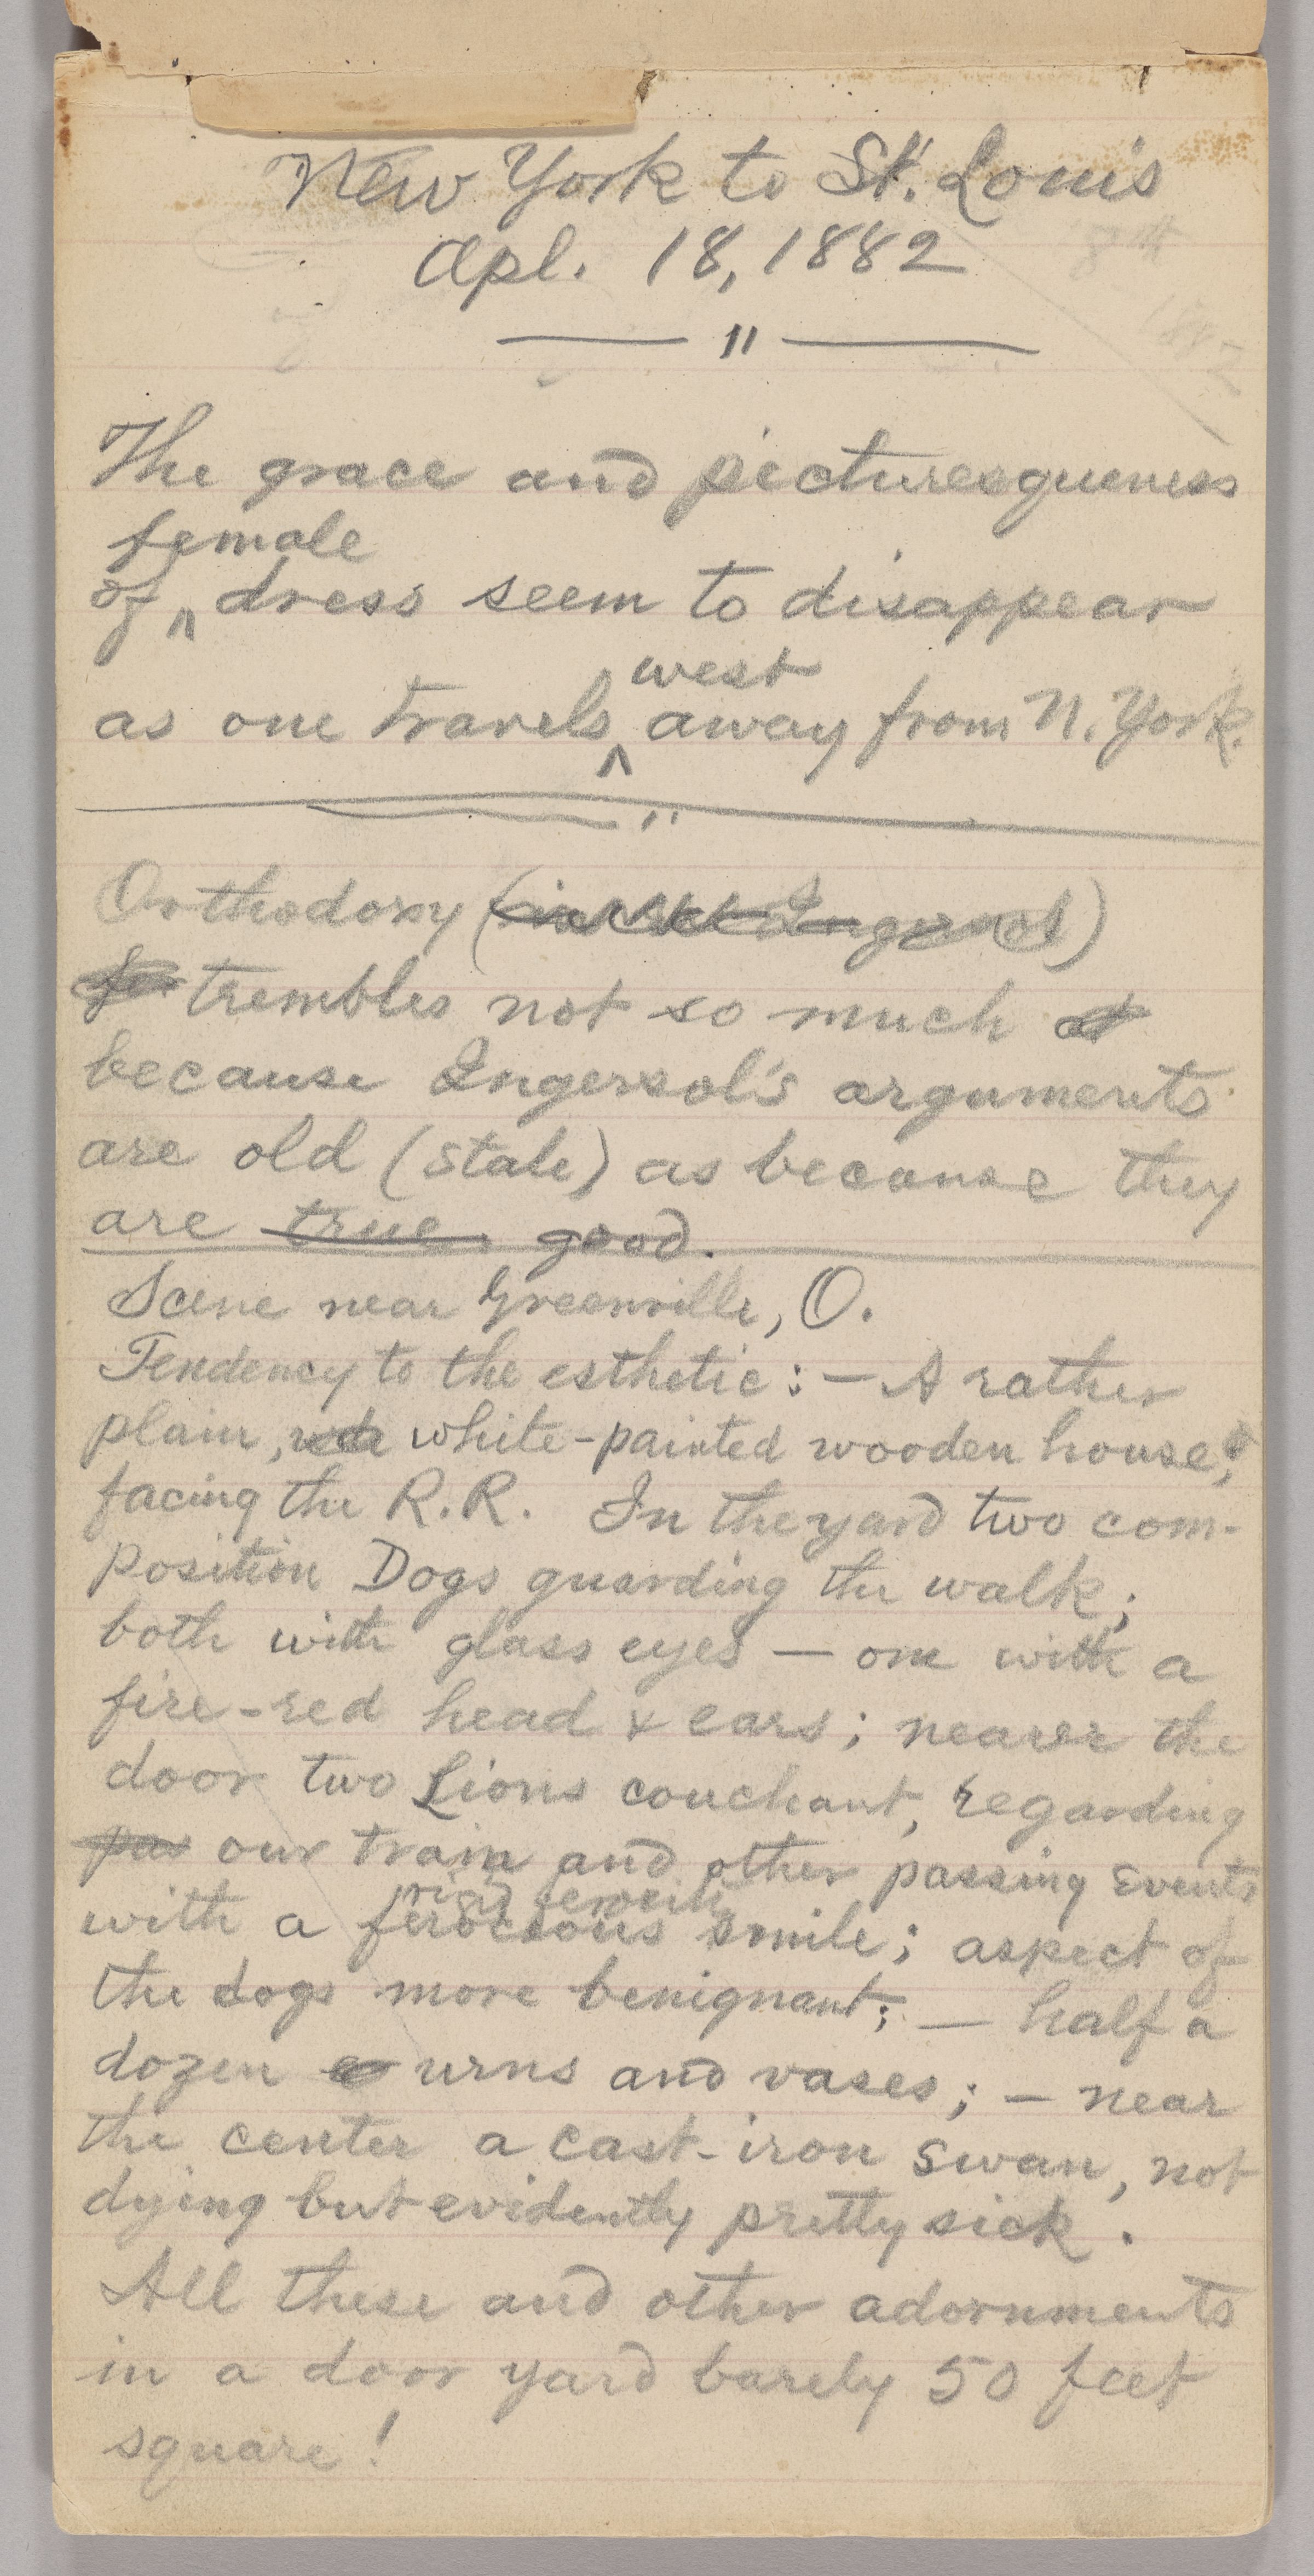 New York to St. Louis
Apl. 18, 1882
The grace and picturesqueness
female
of ^ dress seem to disappear
west
as one travels ^ away from N. York.
Orthodoxy (
trembles not so much at
because Ingersol's arguments
are old (stale) as because they
are true. good.
Scene near Greenville, O.
Tendency to the esthetic: — A rather
plain, white-painted wooden house,
facing the R.R. In the yard two com-
position Dogs guarding the walk;
both with glass eyes — one with a
fire-red head & ears; nearer the
door two Lions couchant, regarding
pas our train and other passing Events
rigid
with a ferocious smile; aspect of
the dogs more benignant; — half a
dozen urns and vases; — near
the center a cast-iron swan, not
dying but evidently pretty sick.
All these and other adornments
in a door yard barely 50 feet
square!